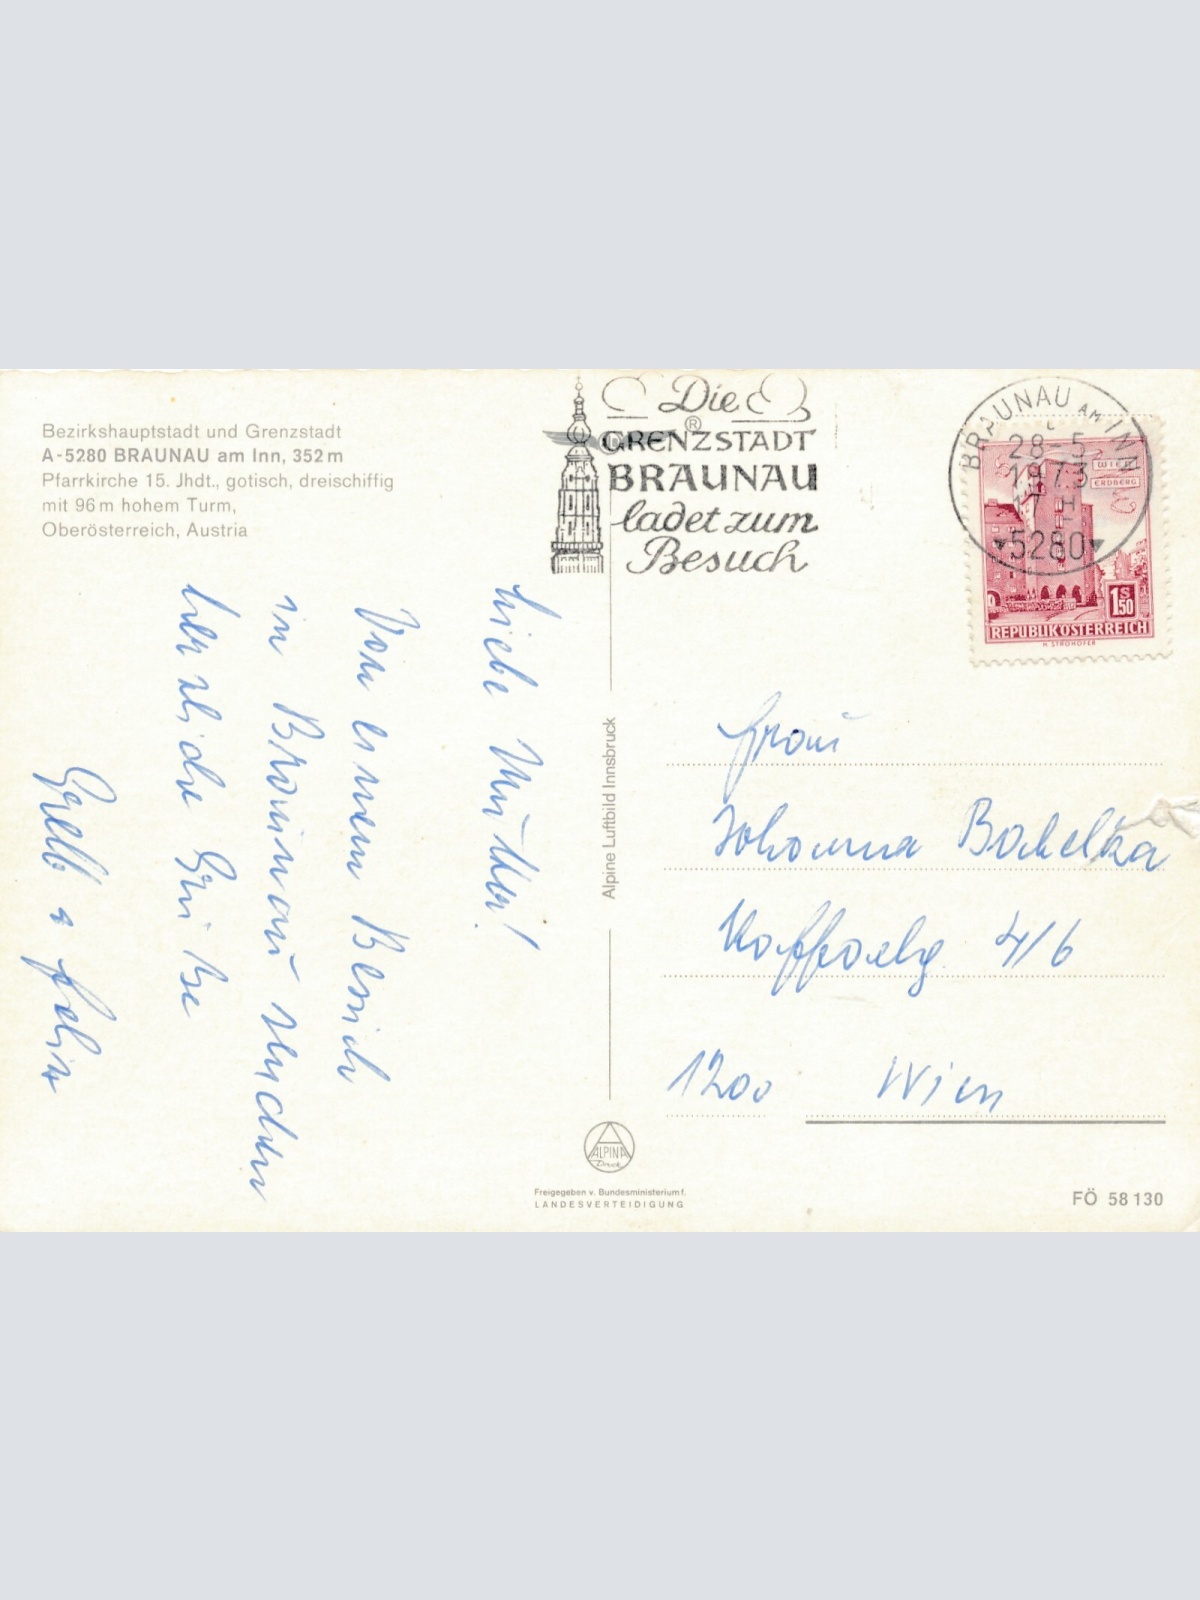 Bezirkshauptstadt und Grenzstadt
A-5280 BRAUNAU am Inn, 352 m
Pfarrkirche 15. Jhdt., gotisch, dreischiffig
mit 96 m hohem Turm,
Oberösterreich, Austria
Die
GRENZSTADT
BRAUNAU
ladet zum
Besuch
BRAUNAU AM INN
28-5
1973
5280
WIEN
ERDBERG
1S50
REPUBLIK ÖSTERREICH
H. STROHOFER
Liebe Mutter!
Von einem Besuch
in Braunau senden
herzliche Grüße
Alpine Luftbild Innsbruck
Frau
Johanna
4/6
1200 Wien
ALPINA
Druck
Freigegeben v. Bundesministerium f.
LANDESVERTEIDIGUNG
FÖ 58 130